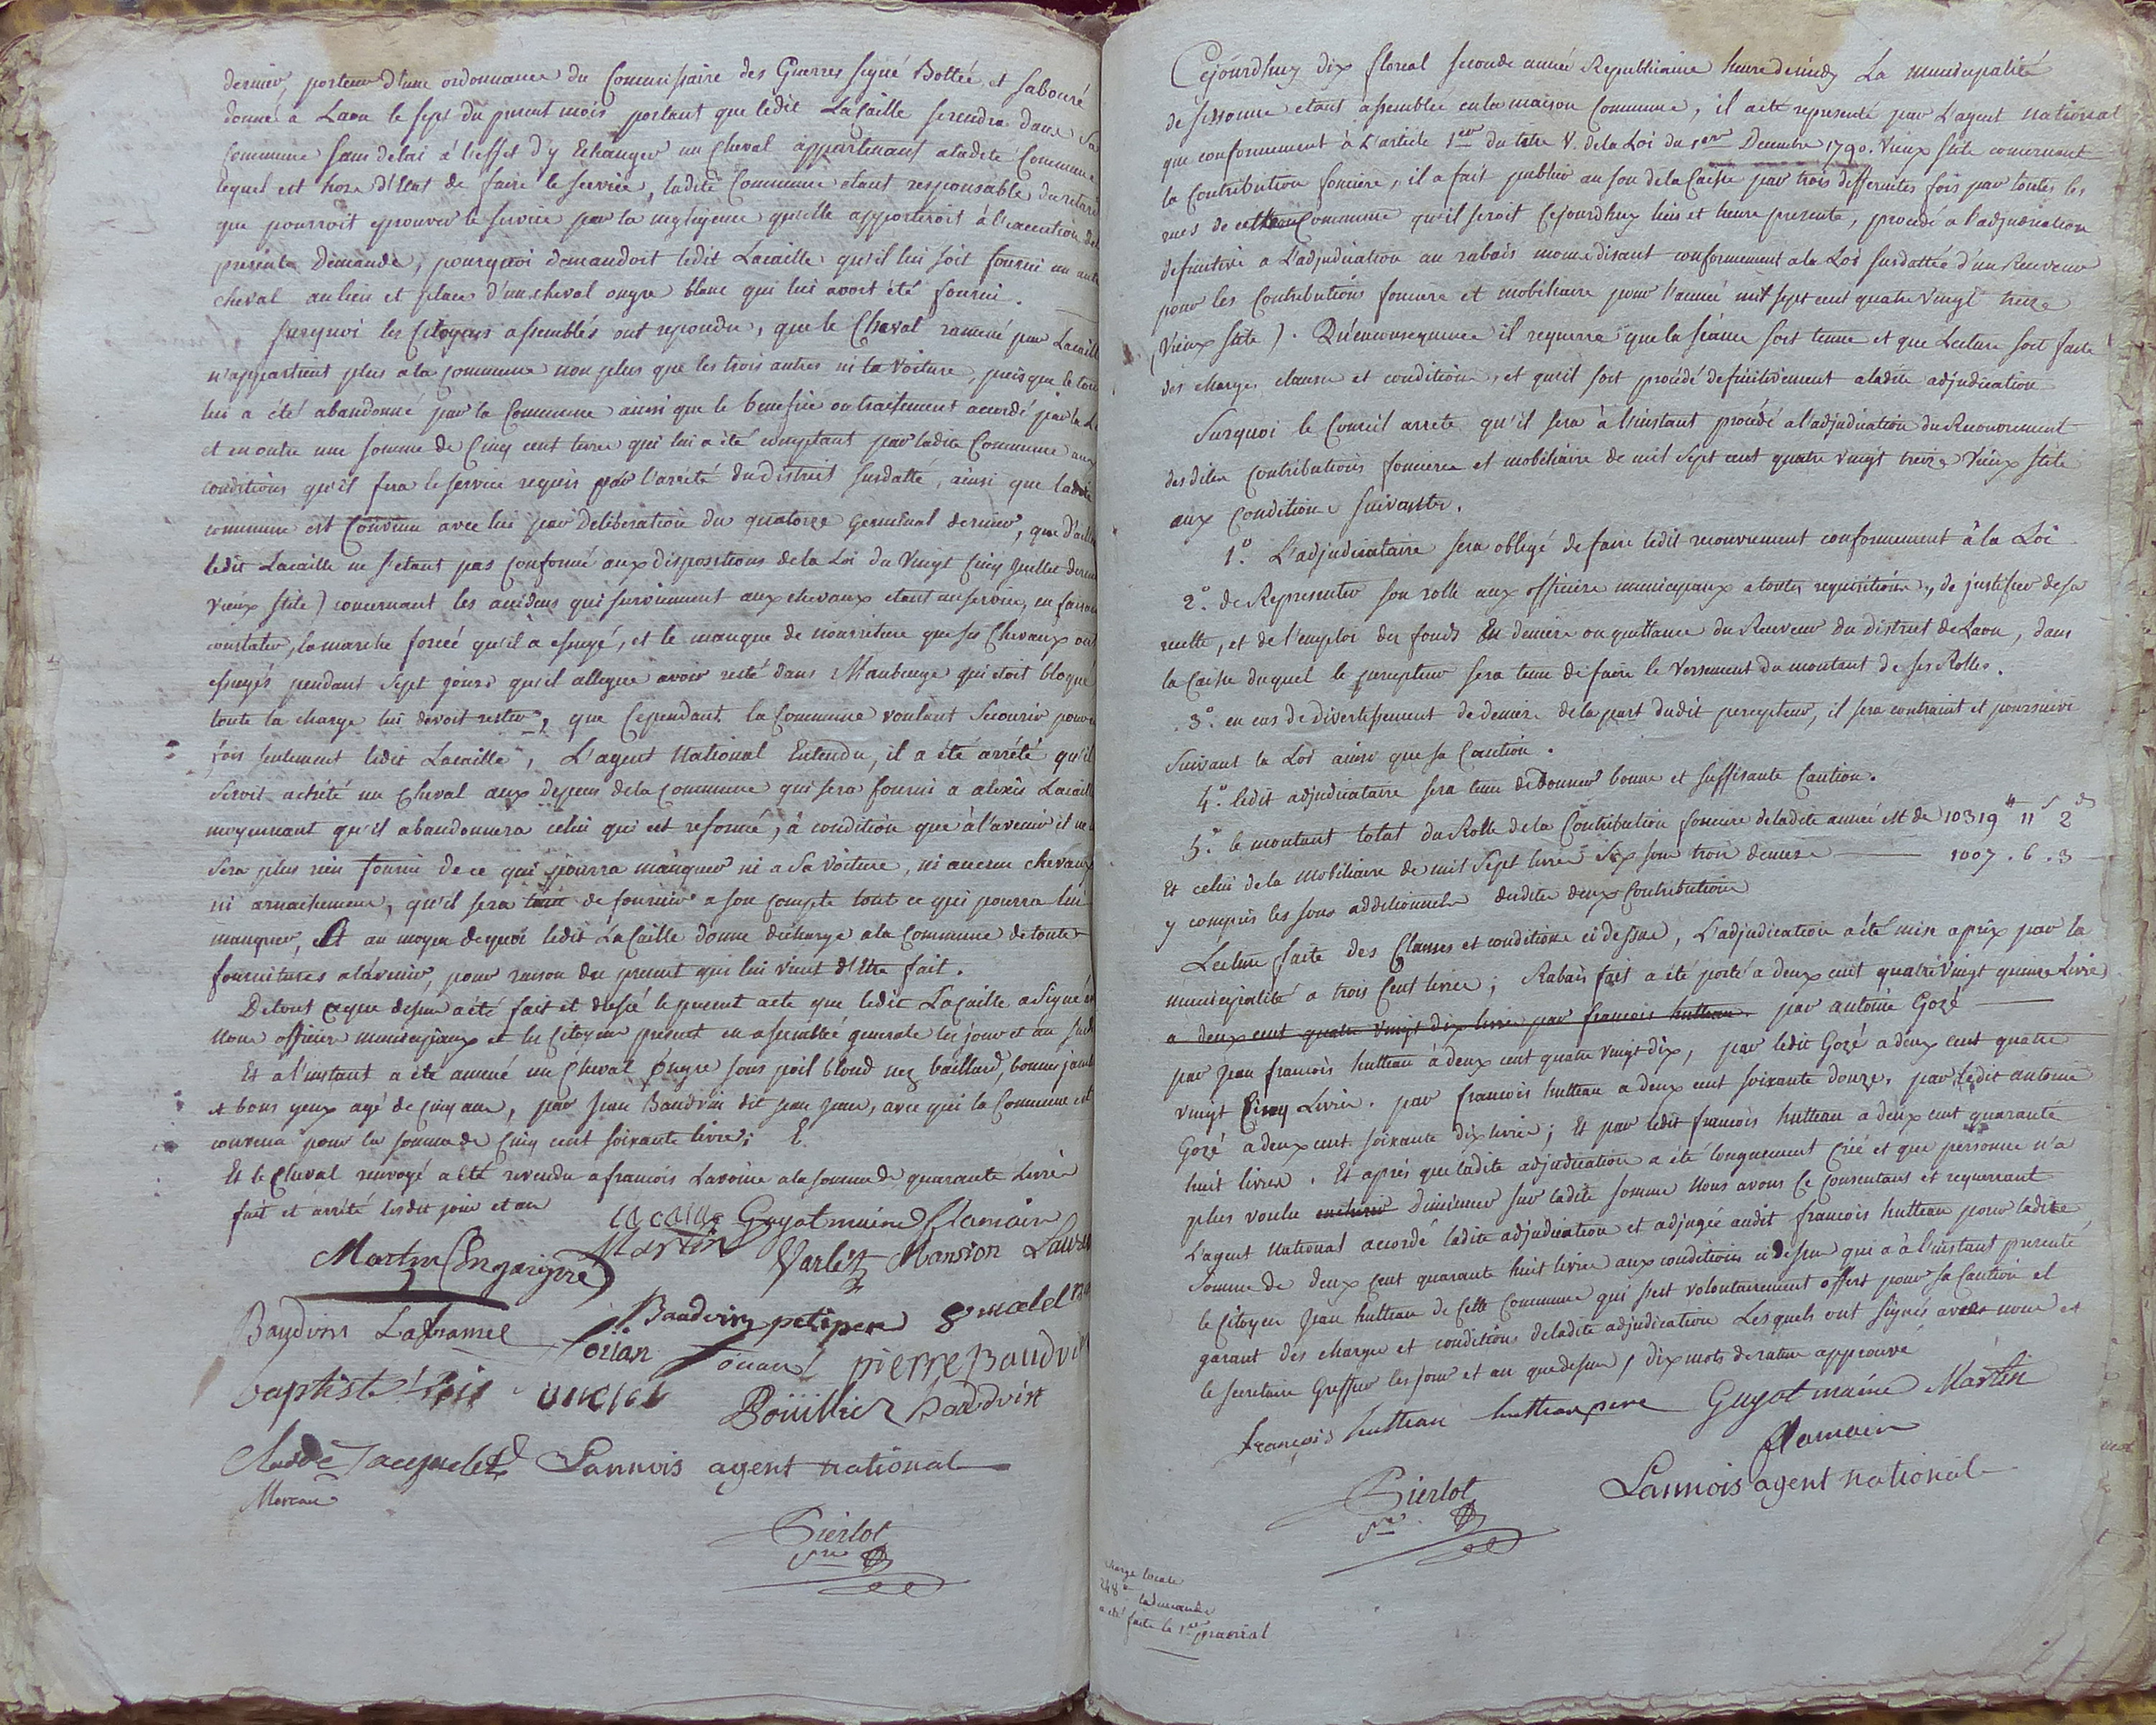 dernier, porteur d'une ordonnance du Commissaire des Guerres signé Bottée, et Sabouré
donné à Laon le sept du present mois portant que ledit Lacaille se rendra dans Sa
Commune sans delai à l'effet d'y Echanger un Cheval appartenant a ladite Commune
lequel est hors d'Etat de faire le service, ladite Commune etant responsable du retard
que pourroit eprouver le service par la negligence qu'elle apporteroit à l'execution de la
presente Demande, pourquoi demandoit ledit Lacaille qu'il lui soit fourni un autre
cheval au lieu et place d'un cheval ongre blanc qui lui avoit été fourni.
Surquoi les Citoyens assemblés ont repondu, que le Cheval ramené par Lacaille
n'appartient plus a la commune non plus que les trois autres ni la Voiture, puis que le tout
lui a été abandonné par la Commune ainsi que le benefice ou traitement accordé par la Loi
et en outre une somme de Cinq cent livres qui lui a été comptant par ladite Commune aux
conditions qu'il fera le service requis par l'arrêté du District susdatté, ainsi que ladite
commune est Convenu avec lui par Deliberation du quatorze Germinal dernier, que d'ailleurs
ledit Lacaille ne s'etant pas conformé aux dispositions de la Loi du Vingt Cinq Juillet dernier
vieux stile) concernant les accidens qui surviennent aux chevaux etant au service, en faisant
constater, la marche forcée qu'il a essuyé, et le manque de nourriture que ses Chevaux ont
essuyés pendant sept jours qu'il allegue avoir resté dans Maubeuge qui etoit bloqué
toute la charge lui devoit rester, que Cependant la Commune voulant Secourir pour
fois seulement ledit Lacaille, L'agent National Entendu, il a été arrêté qu'il
Seroit acheté un Cheval aux depens de la Commune qui sera fourni a alexis Lacaille
moyennant qu'il abandonnera celui qui est reformé, à condition que à l'avenir il ne
Sera plus rien fourni de ce qui pourra manquer ni a Sa Voiture, ni aucun chevaux
ni arnachement, qu'il sera tenu de fournir a son compte tout ce qui pourra lui
manquer, Et au moyen dequoi ledit LaCaille donne décharge a la Commune de toute
fournitures a l'avenir, pour raison du present qui lui vient d'Etre fait.
De tout ce que dessus a été fait et dressé le present acte que ledit LaCaille a Signé
Nous officiers municipaux et les Citoyens present en assemblée generale les jour et an susdit
Et a l'instant a été amené un Cheval Ongre sous poil blond nez baillard, bonnes jambes
et bons yeux agé de Cinq ans, par Jean Baudvin dit jean Jean, avec qui la Commune est
convenu pour la somme de Cinq cent soixante livres; E.
Et le Cheval renvoyé a été revendu a francois Lavoine a la somme de quarante Livres
fait et arrêté lesdit jour et an
Lacaille Guyot maire flamain
Martin
Martin Varlet Mansion
Baudvin Laframée Baudvin petipere
foüan foüant pierre Baudvin
baptiste Bouillier baudvin
Claude Jacquelet Lannois agent national
Moreau
Pierlot
Sre
Cejourdhuy dix floreal seconde année Republicaine heure de midy La municipalité
de sissonne etant assemblée en la maison Commune, il a été representé par L'agent national
que conformement à L'article 1er du titre V. de la Loi du 1er Decembre 1790. Vieux stile concernant
la Contribution fonciere, il a fait publier au son de la Caisse par trois differentes fois par toutes les
rues de cette Commune qu'il seroit Cejourdhuy lieu et heure presente, procédé a l'adjudication
definitive a L'adjudication au rabais moins disant conformement a la Loi susdattée d'un Receveur
pour les Contributions fonciere et mobiliaire pour l'année mil sept cent quatre vingt treize
(Vieux stile). Qu'en consequence il requerre que la séance soit tenue et que Lecture soit faite
des charges clauses et conditions, et qu'il soit procédé definitivement a ladite adjudication
Surquoi le Conseil arrete qu'il sera à l'instant procédé a l'adjudication du Recouvrement
desdites Contributions foncieres et mobiliaire de mil sept cent quatre vingt treize Vieux stile
aux Conditions suivantes.
1.° L'adjudicataire sera obligé de faire ledit recouvrement conformement à la Loi
2.° de Representer son rolle aux officiers municipaux a toutes requisitions, de justifier de sa
recette, et de l'emploi des fonds En deniers ou quittance du Receveur du district de Laon, dans
la Caisse duquel le percepteur sera tenu de faire le versement du montant de ses Rolles.
3.° en cas de divertissement de deniers de la part dudit percepteur, il sera contraint et poursuivi
Suivant la Loi ainsi que sa Caution.
4.° ledit adjudicataire sera tenu de Donner bonne et suffisante Caution.
5.° le montant total du Rolle de la Contribution fonciere de ladite année est de 10319 ₶ 11 s 2 d
Et celui de la Mobiliaire de mil Sept livres Six sous trois deniers — 1007 . 6 . 3
y compris les sous additionnels desdites deux Contributions
Lecture faite des Clauses et conditions ci dessus, L'adjudication a été mise a prix par la
municipalité a trois Cent livres; Rabais fait a été porté a deux cent quatre Vingt quinze Livres
a deux cent quatre vingt dix livres par francois hutteau par antoine Gozé
par Jean francois hutteau à deux cent quatre vingt dix, par ledit Gozé a deux cent quatre
vingt Cinq Livres. par francois hutteau a deux cent soixante douze, par ledit antoine
Gozé a deux cent soixante dix livres; Et par ledit francois hutteau a deux cent quarante
huit livres. Et aprés que ladite adjudication a été longuement Crié et que personne n'a
plus voulu encherir Diminuer sur ladite somme Nous avons Ce Consentant et requerrant
L'agent National accordé ladite adjudication et adjugée audit francois hutteau pour ladite
Somme de deux Cent quarante huit livres aux conditions ci dessus qui a à l'instant presenté
le Citoyen Jean hutteau de Cette Commune qui s'est volontairement offert pour sa Caution et
garant des charges et conditions de ladite adjudication Lesquels ont signés avec nous et
le secretaire Greffier les jour et an que dessus, dix mots de rature approuvé
françois hutteau hutteau pere Guyot maire Martin
flamain
Pierlot Lannois agent national
Sre
charge locale
248 ₶ la demande
a été faite le 1er prairial